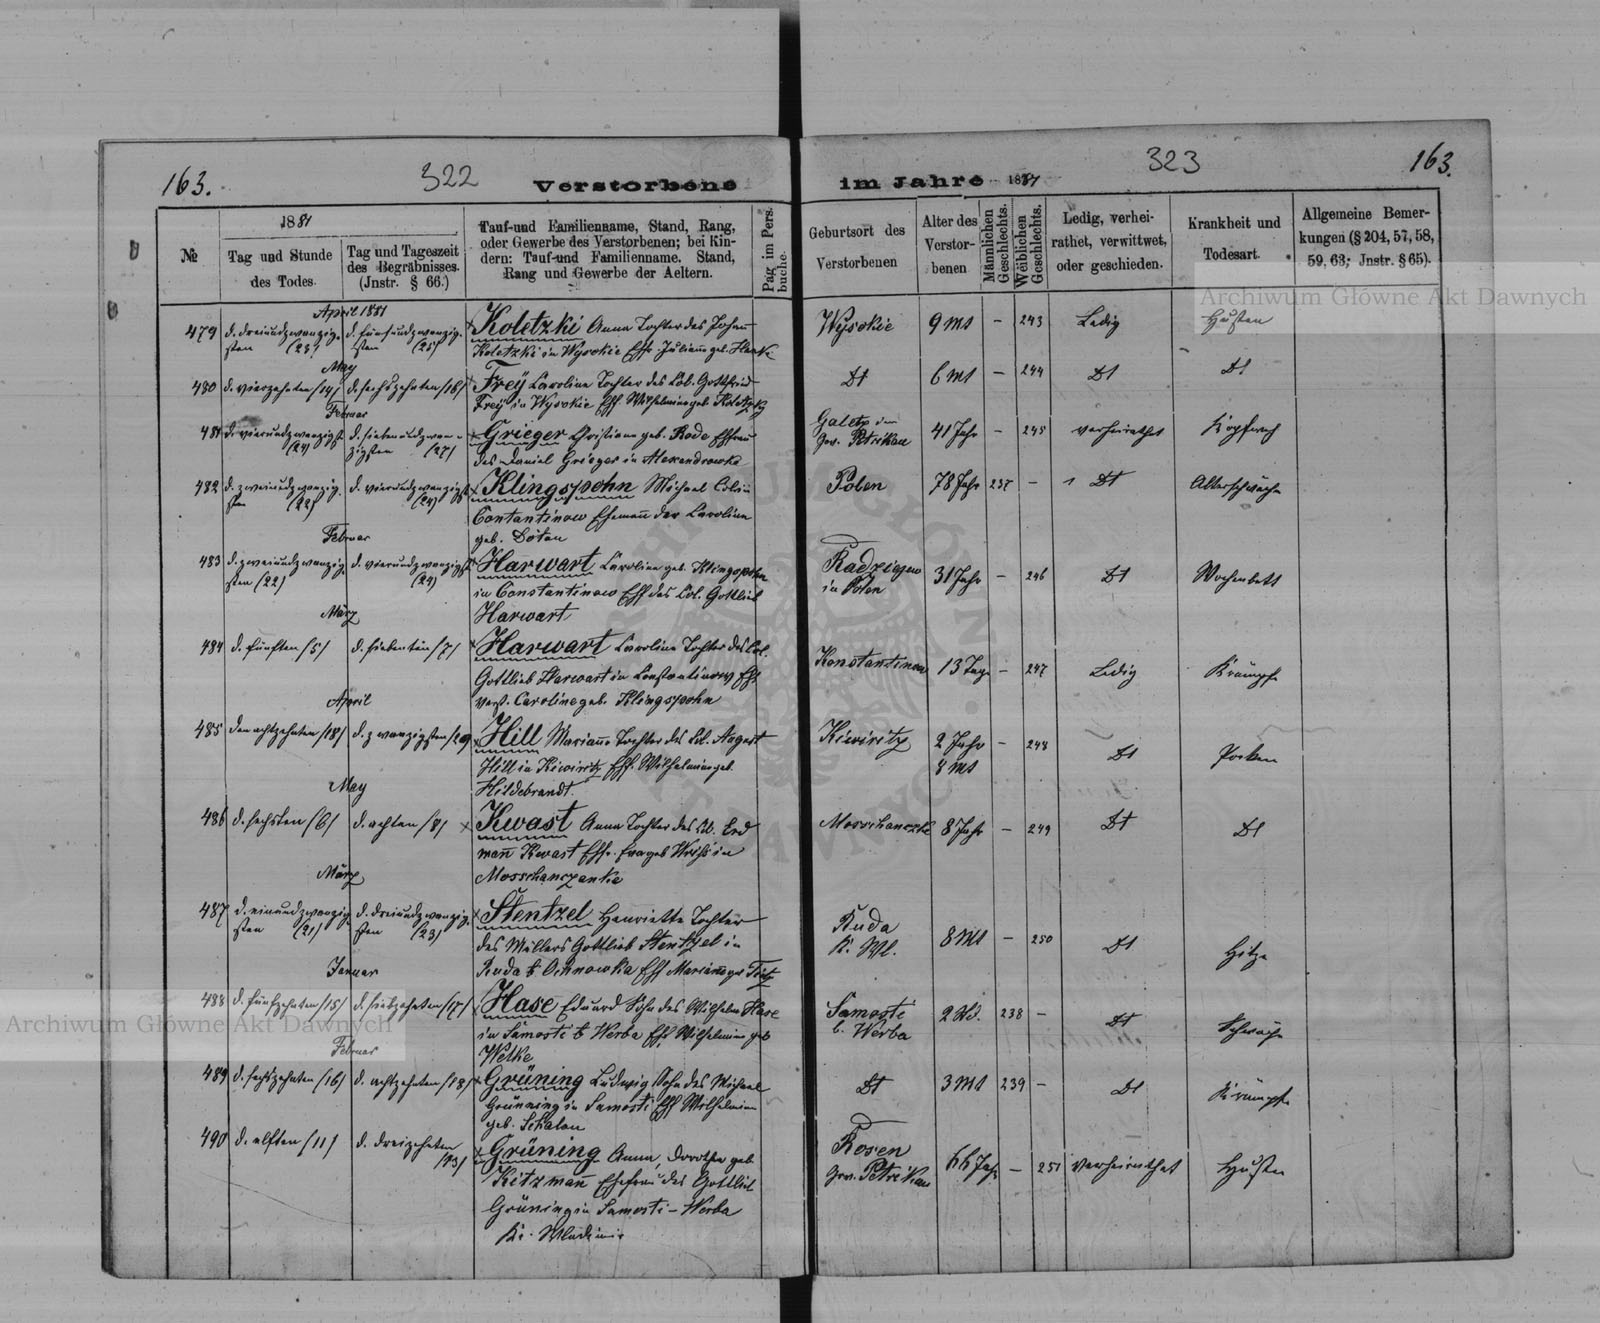 163. 322 Verstorbene
im Jahre 1881 323 163.
№
1881
Tag und Stunde
des Todes.
Tag und Tageszeit
des Begräbnisses.
(Jnstr. § 66.)
Tauf-und Familienname, Stand, Rang,
oder Gewerbe des Verstorbenen; bei Kin-
dern: Tauf-und Familienname, Stand,
Rang und Gewerbe der Aeltern.
Pag im Pers.
buche.
Geburtsort des
Verstorbenen
Alter des
Verstor-
benen
Männlichen
Geschlechts.
Weiblichen
Geschlechts.
Ledig, verhei-
rathet, verwittwet,
oder geschieden.
Krankheit und
Todesart.
Allgemeine Bemer-
kungen (§ 204, 57, 58,
59, 63; Jnstr. § 65).
April 1881
479 d. dreiundzwanzig- d. fünfundzwanzig- Koletzki Anna Tochter des Johann Wysokie 9 Mt – 243 Ledig Husten
sten (23) sten (25) Koletzki in Wysokie Effr Juliane geb. Henke
May
480 d. vierzehnten /14/ d. sechszehnten /16/ Frey Carolina Tochter des Col. Gottfried Dt 6 Mt – 244 Dt Dt
Frey in Wysokie Eff Wilhelmine geb. Koletzky
Februar
481 d. vierundzwanzigst d. siebenundzwan- Grieger Christiane geb. Rode Ehefrau 41 Jahr – 245 verheirathet Kopfweh
(24) zigsten (27) des Daniel Grieger in Alexandrowka Gov. Petrikau
482 d. zweiundzwanzig- d. vierundzwanzigst Klingspohn Michael Polen 78 Jahr 237 – Dt Altersschwäche
sten (22) (24) Constantinow Ehemann der Carolina
Februar geb.
483 d. zweiundzwanzig- d. vierundzwanzigst Harwart Carolina geb. Klingspohn Radziejew 31 Jahr – 246 Dt Wochenbett
sten (22) (24) in Constantinow Eff des Col. Gottlieb in Polen
März Harwart
484 d. fünften /5/ d. siebenten /7/ Harwart Carolina Tochter des Col. Konstantinow 13 Tage – 247 Ledig Krämpfe
Gottlieb Harwart in Constantinow Eff
April verst. Caroline geb. Klingspohn
485 den achtzehnten /18/ d. zwanzigsten /20/ Hill Marianne Tochter des Col. August Kiwiritz 2 Jahr – 248 Dt Pocken
Hill in Kiwiritz Eff. Wilhelmine geb. 8 Mt
May Hildebrandt.
486 d. sechsten /6/ d. achten /8/ Kwast Anna Tochter des Col. Erd 8 Jahr – 249 Dt Dt
mann Kwast Effr. Eva geb in
März Mosschanczanka
487 d. einundzwanzig- d. dreiundzwanzig- Stentzel Henriette Tochter Ruda 8 Mt – 250 Dt Hitze
sten (21) sten (23) des Müllers Gottlieb Stentzel in K. Wl.
Januar Ruda b Ochnowka Eff Marianne geb
488 d. fünfzehnten /15/ d. siebzehnten /17/ Hase Eduard Sohn des Wilhelm Hase Samosti 238 – Dt Schwäche
in Samosti b Werba Effr Wilhelmine geb b. Werba
Februar Welke
489 d. sechszehnten /16/ d. achtzehnten /18/ Grüning Ludwig Sohn des Michael Dt 3 Mt 239 – Dt Krämpfe
Grünning in Samosti Eff Wilhelmine
geb. Schalau
490 d. elften /11/ d. dreizehnten Grüning Anna, Dorothe geb. Rosen 66 Jahr – 251 verheirathet Husten
/13/ Kitzmann Ehefrau des Gottlieb Gov. Petrikau
Grüning in Samosti – Werba
Kr. Wladimir
Archiwum Główne Akt Dawnych
Archiwum Główne Akt Dawnych